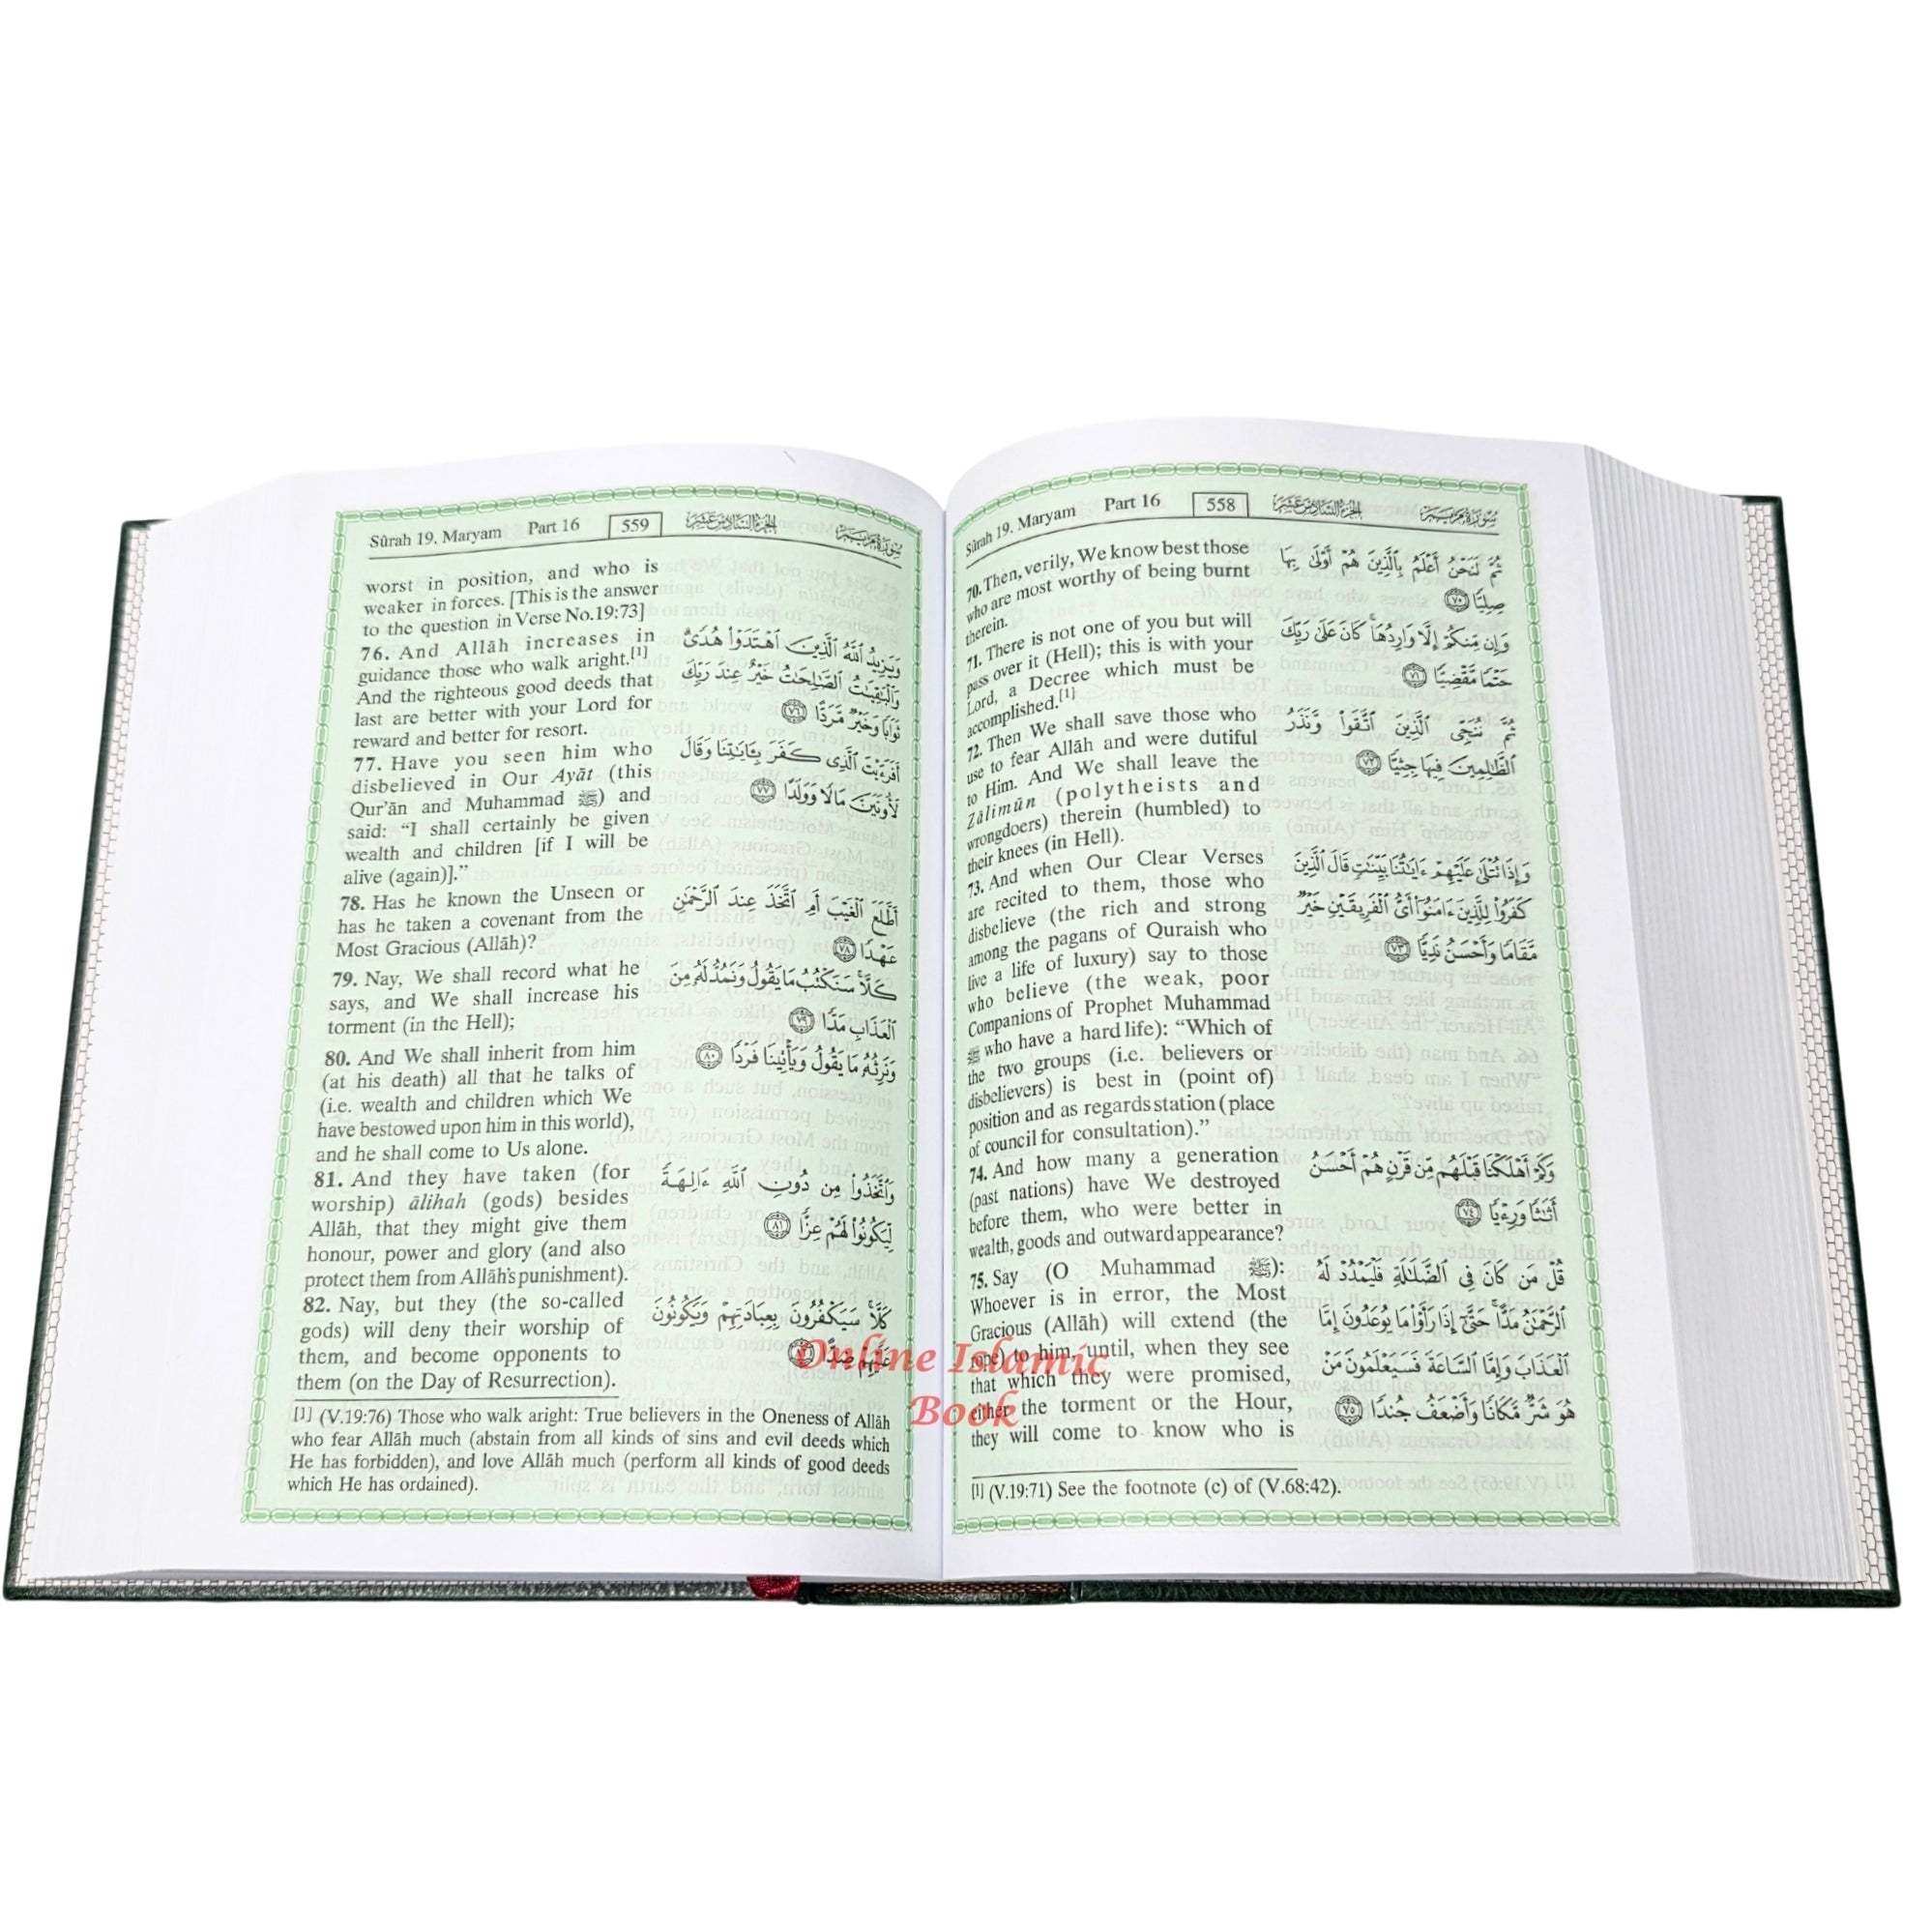 Sûrah 19. Maryam Part 16 558 الجزء السادس عشر سورة مريم
70. Then, verily, We know best those
who are most worthy of being burnt
therein.
71. There is not one of you but will
pass over it (Hell); this is with your
Lord, a Decree which must be
accomplished.[1]
72. Then We shall save those who
use to fear Allāh and were dutiful
to Him. And We shall leave the
Zālimūn (polytheists and
wrongdoers) therein (humbled) to
their knees (in Hell).
73. And when Our Clear Verses
are recited to them, those who
disbelieve (the rich and strong
among the pagans of Quraish who
live a life of luxury) say to those
who believe (the weak, poor
Companions of Prophet Muhammad
ﷺ who have a hard life): “Which of
the two groups (i.e. believers or
disbelievers) is best in (point of)
position and as regards station (place
of council for consultation).”
74. And how many a generation
(past nations) have We destroyed
before them, who were better in
wealth, goods and outward appearance?
75. Say (O Muhammad ﷺ):
Whoever is in error, the Most
Gracious (Allāh) will extend (the
rope) to him, until, when they see
that which they were promised,
either the torment or the Hour,
they will come to know who is
ثُمَّ لَنَحْنُ أَعْلَمُ بِالَّذِينَ هُمْ أَوْلَىٰ بِهَا
صِلِيًّا ٧٠
وَإِن مِّنكُمْ إِلَّا وَارِدُهَا ۚ كَانَ عَلَىٰ رَبِّكَ
حَتْمًا مَّقْضِيًّا ٧١
ثُمَّ نُنَجِّى الَّذِينَ اتَّقَوا وَّنَذَرُ
الظَّـٰلِمِينَ فِيهَا جِثِيًّا ٧٢
وَإِذَا تُتْلَىٰ عَلَيْهِمْ ءَايَـٰتُنَا بَيِّنَـٰتٍ قَالَ الَّذِينَ
كَفَرُوا لِلَّذِينَ ءَامَنُوٓا أَىُّ الْفَرِيقَيْنِ خَيْرٌ
مَّقَامًا وَأَحْسَنُ نَدِيًّا ٧٣
وَكَمْ أَهْلَكْنَا قَبْلَهُم مِّن قَرْنٍ هُمْ أَحْسَنُ
أَثَـٰثًا وَرِءْيًا ٧٤
قُلْ مَن كَانَ فِى الضَّلَـٰلَةِ فَلْيَمْدُدْ لَهُ
الرَّحْمَـٰنُ مَدًّا ۚ حَتَّىٰٓ إِذَا رَأَوْا مَا يُوعَدُونَ إِمَّا
الْعَذَابَ وَإِمَّا السَّاعَةَ فَسَيَعْلَمُونَ مَنْ
هُوَ شَرٌّ مَّكَانًا وَأَضْعَفُ جُندًا ٧٥
[1] (V.19:71) See the footnote (c) of (V.68:42).
Sûrah 19. Maryam Part 16 559 الجزء السادس عشر سورة مريم
worst in position, and who is
weaker in forces. [This is the answer
to the question in Verse No.19:73]
76. And Allāh increases in
guidance those who walk aright.[1]
And the righteous good deeds that
last are better with your Lord for
reward and better for resort.
77. Have you seen him who
disbelieved in Our Ayāt (this
Qur’ān and Muhammad ﷺ) and
said: “I shall certainly be given
wealth and children [if I will be
alive (again)].”
78. Has he known the Unseen or
has he taken a covenant from the
Most Gracious (Allāh)?
79. Nay, We shall record what he
says, and We shall increase his
torment (in the Hell);
80. And We shall inherit from him
(at his death) all that he talks of
(i.e. wealth and children which We
have bestowed upon him in this world),
and he shall come to Us alone.
81. And they have taken (for
worship) ālihah (gods) besides
Allāh, that they might give them
honour, power and glory (and also
protect them from Allāh's punishment).
82. Nay, but they (the so-called
gods) will deny their worship of
them, and become opponents to
them (on the Day of Resurrection).
وَيَزِيدُ اللَّهُ الَّذِينَ اهْتَدَوْا هُدًى
وَالْبَـٰقِيَـٰتُ الصَّـٰلِحَـٰتُ خَيْرٌ عِندَ رَبِّكَ
ثَوَابًا وَخَيْرٌ مَّرَدًّا ٧٦
أَفَرَءَيْتَ الَّذِى كَفَرَ بِـَٔايَـٰتِنَا وَقَالَ
لَأُوتَيَنَّ مَالًا وَوَلَدًا ٧٧
أَطَّلَعَ الْغَيْبَ أَمِ اتَّخَذَ عِندَ الرَّحْمَـٰنِ
عَهْدًا ٧٨
كَلَّا ۚ سَنَكْتُبُ مَا يَقُولُ وَنَمُدُّ لَهُ مِنَ
الْعَذَابِ مَدًّا ٧٩
وَنَرِثُهُ مَا يَقُولُ وَيَأْتِينَا فَرْدًا ٨٠
وَاتَّخَذُوا مِن دُونِ اللَّهِ ءَالِهَةً
لِّيَكُونُوا لَهُمْ عِزًّا ٨١
كَلَّا ۚ سَيَكْفُرُونَ بِعِبَادَتِهِمْ وَيَكُونُونَ
عَلَيْهِمْ ضِدًّا ٨٢
[1] (V.19:76) Those who walk aright: True believers in the Oneness of Allāh
who fear Allāh much (abstain from all kinds of sins and evil deeds which
He has forbidden), and love Allāh much (perform all kinds of good deeds
which He has ordained).
Online Islamic
Book